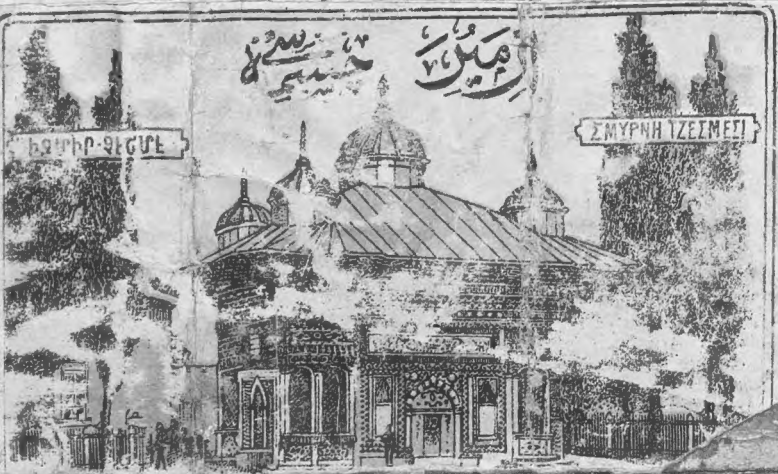 ازمير چشمه سى
ԻԶՄԻՐ-ՉԷՇՄԷ
ΣΜΥΡΝΗ ΤΖΕΣΜΕΣΙ